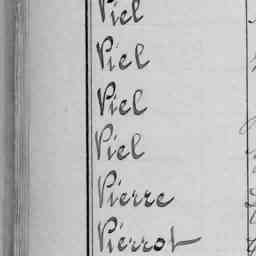 Piel
Piel
Piel
Piel
Pierre
Pierrot